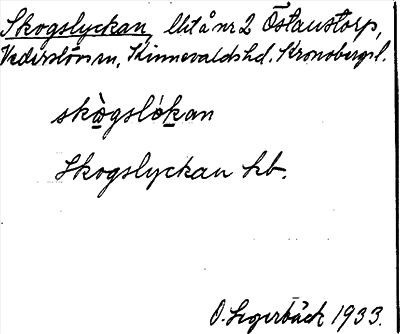 Skogslyckan, lht å nr 2 Östanstorp,
Vederslövs sn, Kinnevalds hd, Kronobergs l.
skògslòkan
Skogslyckan hb.
O. Segerbäck 1933.